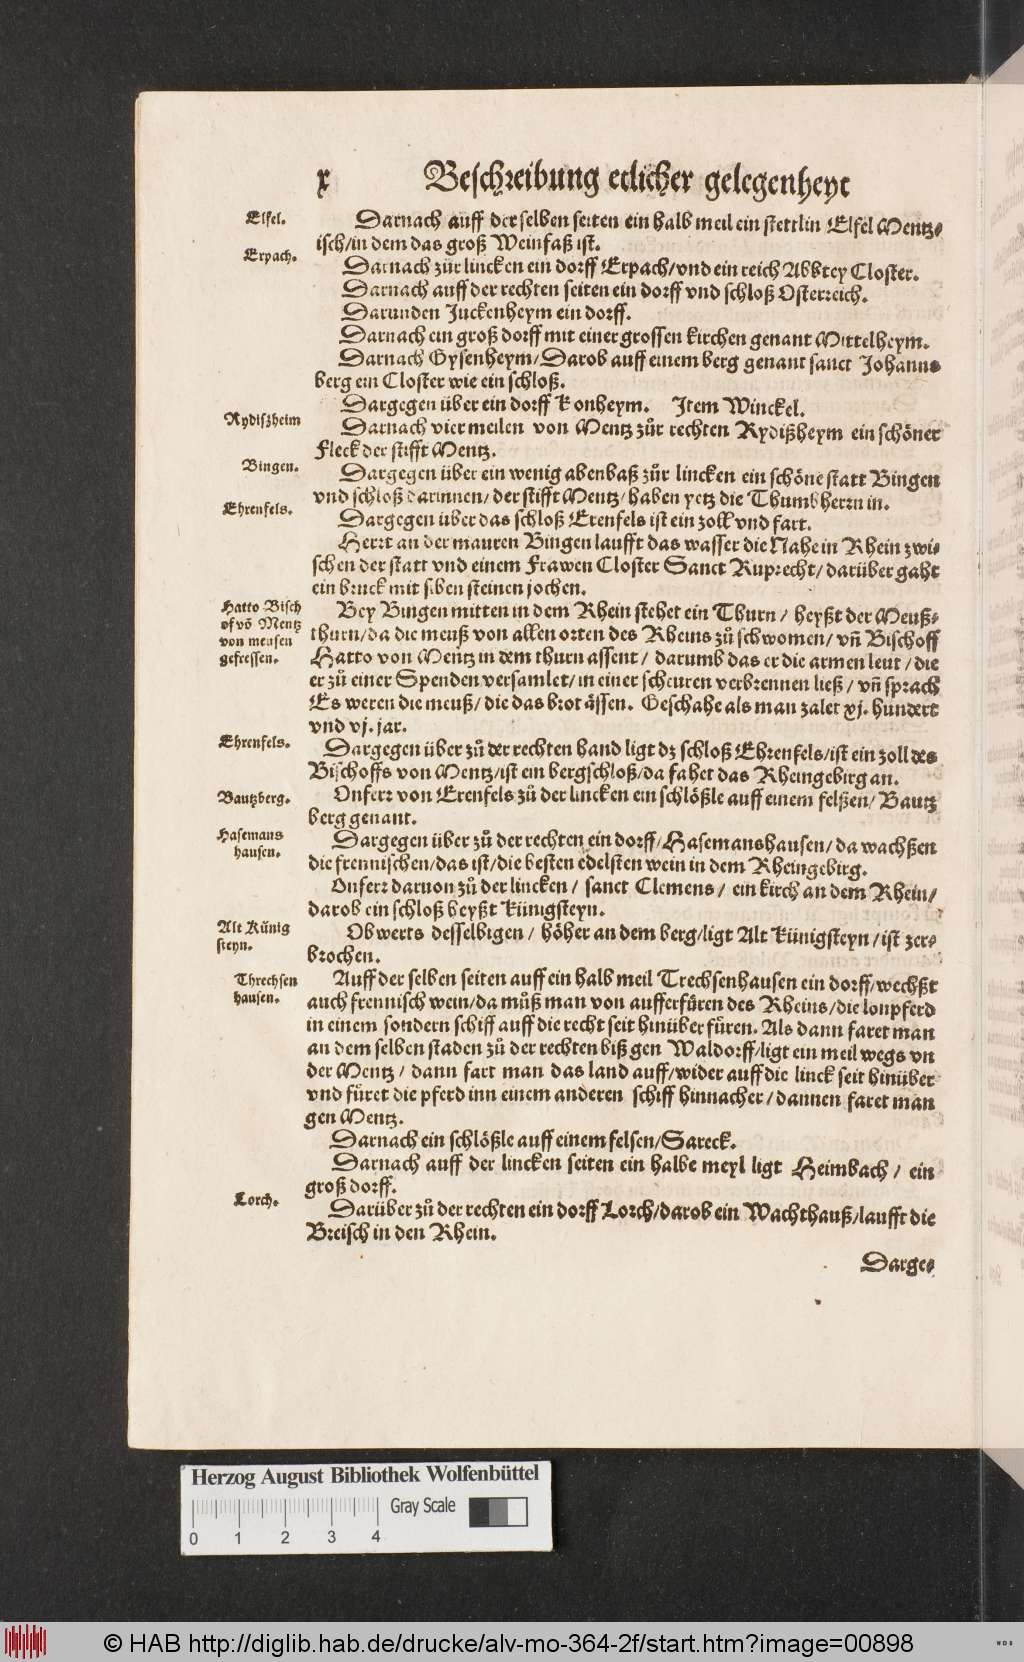 x Beschreibung etlicher gelegenheyt
Elfel.
Darnach auff der selben seiten ein halb meil ein stettlin Elfel Mentz⸗
isch/in dem das groß Weinfaß ist.
Erpach.
Darnach zůr lincken ein dorff Erpach/vnd ein reich Abbtey Closter.
Darnach auff der rechten seiten ein dorff vnd schloß Osterreich.
Darunden Juckenheym ein dorff.
Darnach ein groß dorff mit einer grossen kirchen genant Mittelheym.
Darnach Gysenheym/Darob auff einem berg genant sanct Johanns
berg ein Closter wie ein schloß.
Dargegen über ein dorff Konheym. Item Winckel.
Rydißheim
Darnach vier meilen von Mentz zůr rechten Rydißheym ein schöner
Fleck der stifft Mentz.
Bingen.
Dargegen über ein wenig abenbaß zůr lincken ein schöne statt Bingen
vnd schloß darinnen/ der stifft Mentz/haben yetz die Thumbherrn in.
Ehrenfels.
Dargegen über das schloß Erenfels ist ein zoll vnd fart.
Herrt an der mauren Bingen laufft das wasser die Nahe in Rhein zwi⸗
schen der statt vnd einem Frawen Closter Sanct Ruprecht/ darüber gaht
ein bruck mit siben steinen jochen.
Hatto Bisch
of võ Mentz
von meusen
gefressen.
Bey Bingen mitten in dem Rhein stehet ein Thurn / heyßt der Meuß⸗
thurn/da die meuß von allen orten des Rheins zů schwomen/ vñ Bischoff
Hatto von Mentz in dem thurn assent / darumb das er die armen leut / die
er zů einer Spenden versamlet/in einer scheuren verbrennen ließ / vñ sprach
Es weren die meuß/ die das brot ässen. Geschahe als man zalet xj. hundert
vnd vj. jar.
Ehrenfels.
Dargegen über zů der rechten hand ligt dz schloß Ehrenfels/ist ein zoll des
Bischoffs von Mentz/ist ein bergschloß/da fahet das Rheingebirg an.
Bautzberg.
Onferr von Erenfels zů der lincken ein schlößle auff einem felßen/ Bautz
berg genant.
Hasemans
hausen.
Dargegen über zů der rechten ein dorff/Hasemanshausen/ da wachßen
die frennischen/das ist/die besten edelsten wein in dem Rheingebirg.
Onferr daruon zů der lincken / sanct Clemens / ein kirch an dem Rhein/
darob ein schloß heyßt Künigsteyn.
Alt Künig
steyn.
Obwerts desselbigen / höher an dem berg/ligt Alt Künigsteyn/ist zer⸗
brochen.
Threchsen
hausen.
Auff der selben seiten auff ein halb meil Trechsenhausen ein dorff/wechßt
auch frennisch wein/da můß man von aufferfüren des Rheins/die lonpferd
in einem sondern schiff auff die recht seit hinüber füren. Als dann faret man
an dem selben staden zů der rechten biß gen Waldorff/ligt ein meil wegs vn
der Mentz/ dann fart man das land auff/wider auff die linck seit hinüber
vnd füret die pferd inn einem anderen schiff hinnacher/dannen faret man
gen Mentz.
Darnach ein schlößle auff einem felsen/Sareck.
Darnach auff der lincken seiten ein halbe meyl ligt Heimbach / ein
groß dorff.
Lorch.
Darüber zů der rechten ein dorff Lorch/darob ein Wachthauß/laufft die
Breisch in den Rhein.
Darge⸗
Herzog August Bibliothek Wolfenbüttel
Gray Scale
0 1 2 3 4
© HAB http://diglib.hab.de/drucke/alv-mo-364-2f/start.htm?image=00898